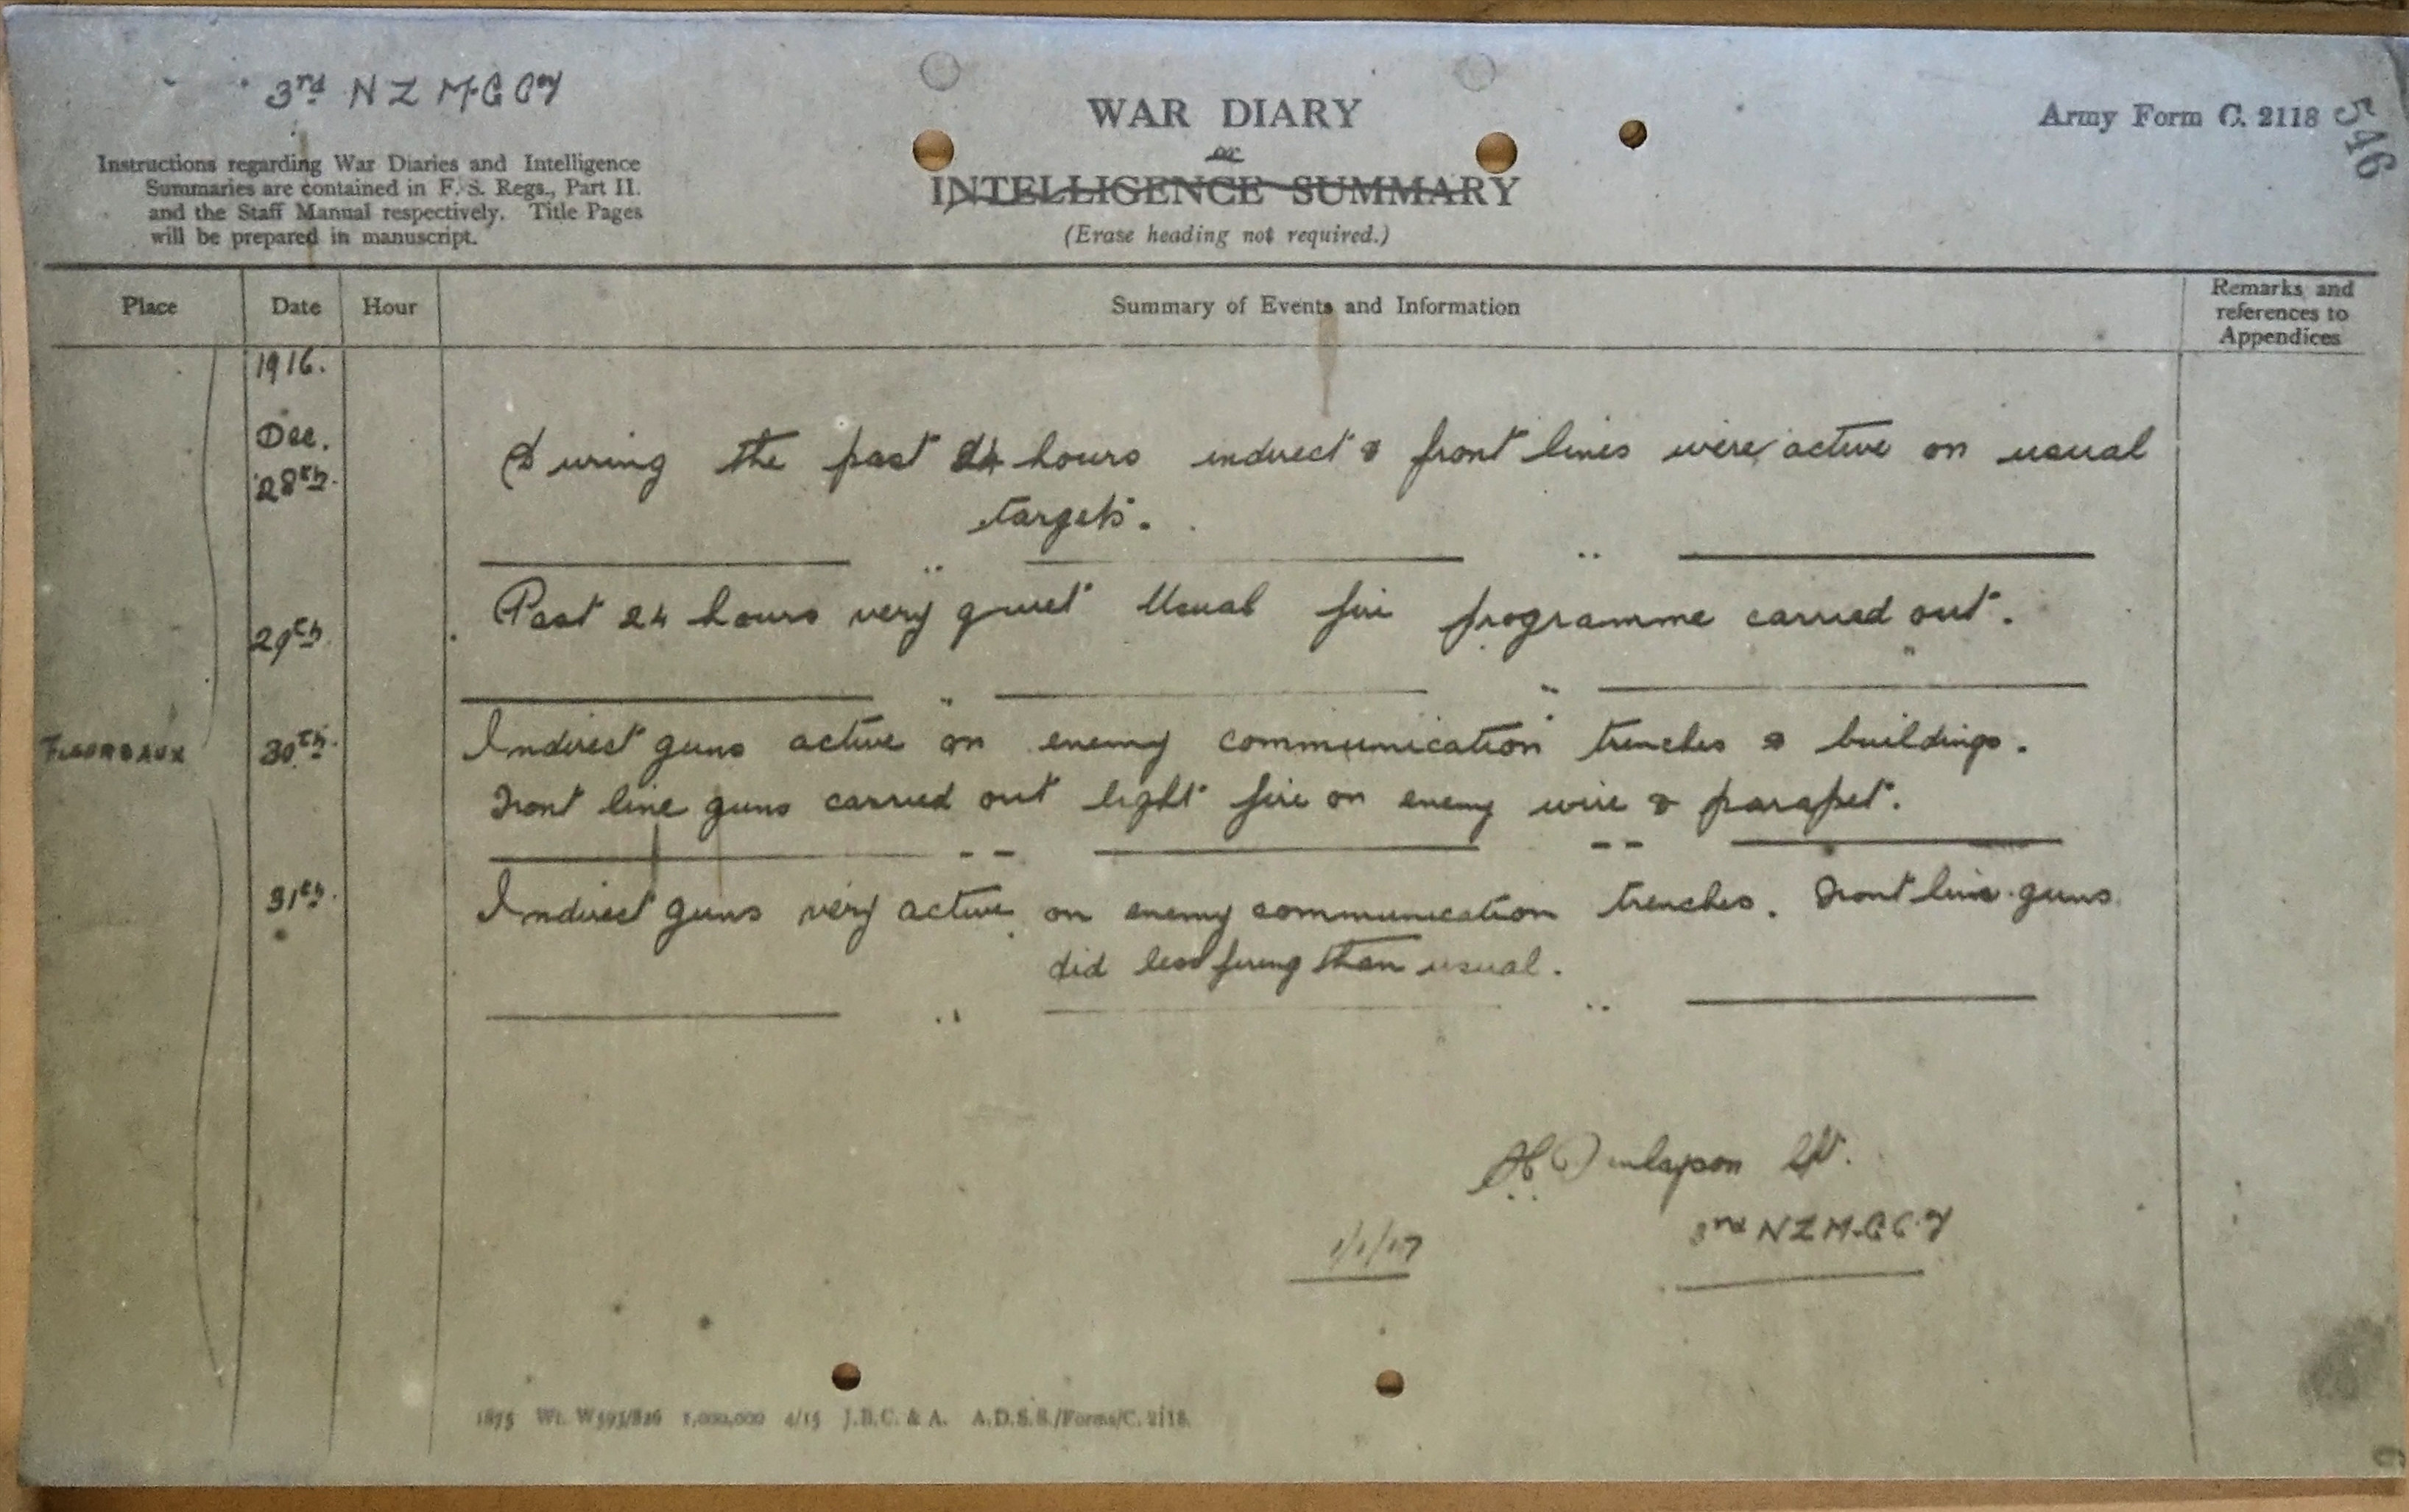 3rd NZ M.G Coy
WAR DIARY
or
INTELLIGENCE SUMMARY
(Erase heading not required.)
Army Form C. 2118
546
Instructions regarding War Diaries and Intelligence
Summaries are contained in F. S. Regs., Part II.
and the Staff Manual respectively. Title Pages
will be prepared in manuscript.
Place
Date
Hour
Summary of Events and Information
Remarks and
references to
Appendices
1916.
Dec.
28th.
During the past 24 hours indirect & front lines were active on usual
targets.
29th.
Past 24 hours very quiet Usual fire programme carried out.
FLEURBAUX
30th.
Indirect guns active on enemy communication trenches & buildings.
Front line guns carried out light fire on enemy wire & parapet.
31th.
Indirect guns very active on enemy communication trenches. Front line guns
did less firing than usual.
Lt.
1/1/17
3rd NZ M.G Coy
1875 Wt. W593/826 1,000,000 4/15 J.B.C. & A. A.D.S.S./Forms/C. 2118.